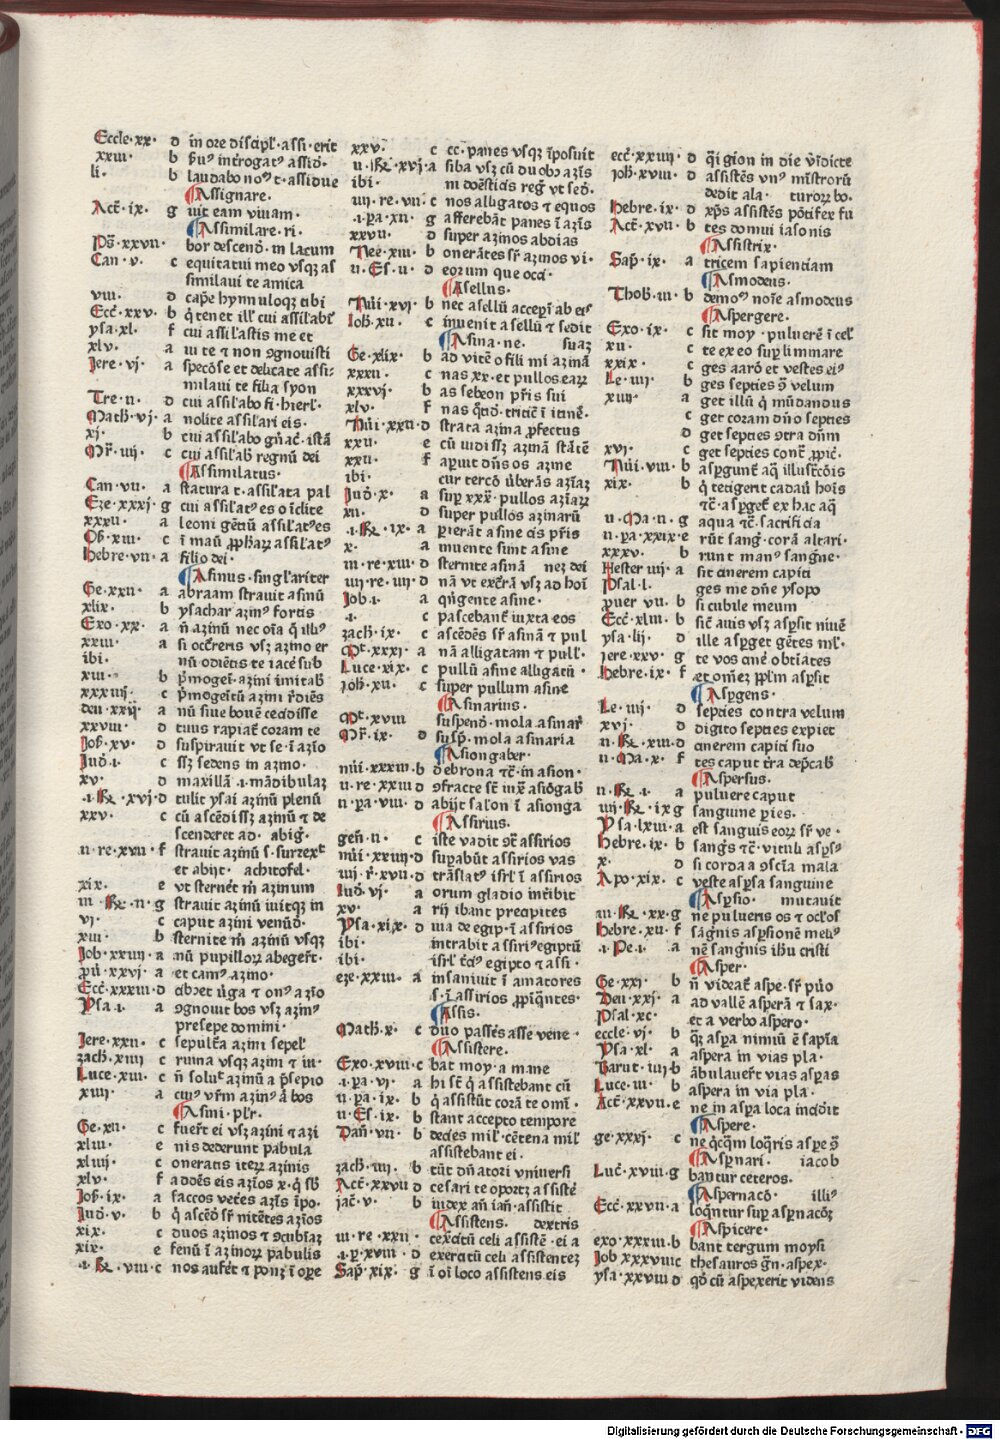 Eccle·xx· d in ore discipl'·assi·erit
xxiii· b
li· b laudabo no⁹ t·assidue
Assignare.
Act̄·ix· g uit eam viuam·
Assimilare·ri·
Ps̄·xxvii· bor descenō·in lacum
Can·v· c equitatui meo vsqꝫ as
similaui te amica
viii· d cap̄e hynnuloqꝫ tibi
Ecc̄·xxv· b
ysa·xl· f cui assil'astis me et
xlv· a iu te ⁊ non ꝯgnouisti
Jere·vj· a specōse et delicate assi·
milaui te filia syon
Tre·ii· d cui assil'abo fi·hierl'·
Math·vj· a nolite assil'ari eis·
xj· b cui assil'abo gn̄ac̄·istā
Mr̄·iiij· c cui assil'ab̄ regnū dei
Assimilatus·
Can·vii· a statura t·assil'ata pal
Eze·xxxj· g cui assil'at⁹ es o īclite
xxxii· a leoni gētiū assil'at⁹es
Ob̄·xiii· c
Hebre·vii· a filio dei·
Asinus·singl'ariter
Ge·xxii· a abraam strauit asinū
xlix· b ysachar azin⁹ fortis
Exo·xx· a n̄ azinū nec oīa q̄ illi⁹
xxiii· a si occ̄reris vsꝫ azino er
ibi· nū odiētis te iacē sub
xiii· b p̄mogeī·azini imitab̄
xxxiiij· c p̄mogeītū azini r̄diēs
deu·xxij· a nū siue bouē cecidisse
xxviii· d tuus rapiat̄ coram te
Job̄·xv· d suspirauit vt se·ī azīo
Jud̄·i· c ssꝫ sedens in azino·
xv· d maxillā·i·mādibulaꝫ
·i·Re·xvj· d tulit ysai azinū plenū
xxv· c cū ascēdissꝫ azinū ⁊ de
scenderet ad·abiḡ·
ii·re·xvii· f strauit azinū s·surrexᵗ
et abijt·achitofel·
xix· e vt sternēt m̄ azinum
iii·Re·ii· g strauit azinū iuitqꝫ in
vj· c caput azini venūd̄·
xiii· b sternite m̄ azinū vsqꝫ
Job·xxiiij· a nū pupilloꝝ abegert̄·
pū·xxvj· a et cam⁹ azino·
Ecc̄·xxxiii· d cib⁹et ūga ⁊ on⁹ azīo
Ysa·i· a ꝯgnouit bos vsꝫ azin⁹
presepe domini·
Jere·xxii· c sepult̄a azini sepel'
zach̄·xiiij c ruina vsqꝫ azini ⁊ iu·
Luce·xiii· c n̄ solutᵗ azinū a p̄sepio
xiiij· a cui⁹ vr̄m azin⁹ a bos
Asini·pl'r·
Ge·xii· c fuer̄t ei vsꝫ azini ⁊ azi
xliii· e nis dederunt pabula
xliiij· c oneratis iteꝝ azinis
xlv· f addēs eis azīos x·q̄ sb̄
Job̄·ix· a saccos vetēs azīs īpo·
Jud̄·v· b q̄ ascēd̄ sr̄ nitētes azīos
xix· c duos azinos ⁊ ꝯcubīaꝫ
xix· e fenū ī azinoꝝ pabulis
·i·Re·viii· c nos aufēt ⁊ ponꝫ ī ope
xxv· c cc·panes vsqꝫ īposuit
ii·Re·xvj· a siba vsꝫ cū duob⁹ azīs
ibi· ni doēsticis reḡ vt sed̄·
iiij·re·vii· c nos alligatos ⁊ equos
·i·pa·xii· g afferebāt panes ī azīs
xxvii· d super azinos abdias
Nee·xiii· b onerātes sr̄ azinos vi·
ii·Es·ii· d eorum que occi·
Asellus·
Nūi·xvj· b nec asellū acceperī ab eis
Joh̄·xii· c inuenit asellū ⁊ sedit
Asina·ne· suaꝫ
Ge·xlix· b ad vitē o fili mi azinā
xxxii· c nas xx·et pullos eaꝝ
xxxvj· b as sebeon pr̄is sui
xlv· f nas q̄tid̄·triticī ī itinē·
Nūi·xxii· d strata azina ꝓfectus
xxii· e cū uidissꝫ azinā stātē
xxii· f aperuit dn̄s os azine
ibi· cur tercō ūberās azīaꝫ
Jud̄·x· a super xxx·pullos azīaꝝ
xii· d super pullos azinarū
·i·Re·ix· a perierāt asine cis pr̄is
x· a inuente sunt asine
iii·re·xiii· d sternite asinā nez dei
iiij·re·iiij· d nā vt excr̄ā vsꝫ ad hoī
Job·i· a qn̄gente asine·
·i· c pascebant̄ iuxta eos
zach̄·ix· c ascēdēs sr̄ asinā ⁊ pul
Mt̄·xxxj· a nā alligatam ⁊ pull'·
Luce·xix· c pullū asine alligatū·
ioh̄·xii· c super pullum asine
Asinarius·
Mt̄·xviii suspend̄·mola asinar̄
Mr̄·ix· d susp̄·mola asinaria
Asiongaber·
nūi·xxxiii· b debrona ⁊c̄·in asion·
ii·re·xxiii d ꝯfracte st̄ iux̄ asiōgab̄
ii·pa·viii· d abijt salon̄ ī asionga
Assirius·
gen̄·ii· c iste vadit ꝯt̄ assirios
nūi·xxiiij· d superabūt assirios vas
iiij·r̄·xvii· d trāslat⁹ isrl' ī assirios
Jud̄·vj· a orum gladio intībit
xv· a rij ibant precipites
Ysa·xix· d uia de egip·ī assirios
ibi· intrabit assiri⁹egiptū
ibi· isrl' t̄ci⁹ egipto ⁊ assi·
eze·xxiii· a insaniuit ī amatores
s·ī assirios ꝓpīq̄ntes·
Assis·
Math̄·x· c duo passēs asse vene·
Assistere·
Exo·xviii· c bat moy·a mane
·i·pa·vj· a hi st̄ q̄ assistebant cū
ii·pa·ix· b q̄ assistūt corā te omī·
ii·Es·ix· b stant accepto tempore
Dan̄·vii· b decies mil'·cētena mil'
assistebant ei·
zach̄·iiij· b tūt dn̄atori vniuersi
Act̄·xxvii d cesari te oportꝫ assistē
iac̄·v· b iudex an̄ ian̄·assistit
Assistens· dextris
iii·re·xxii· cexc̄itū celi assistē·ei a
·i·pr̄·xviii· d exercitū celi assistentez
Sap̄·xix· g ī oī loco assistens eis
ecc̄·xxiiij· d
ioh̄·xviii· d assistēs vn⁹ mīstrorū
dedit ala· turoꝝ bo·
Hebre·ix· d xp̄s assistēs pōtifex fu
Act̄·xvii· b tes domui iasonis
Assistrix·
Sap̄·ix· a tricem sapientiam
Asmodeus·
Thob̄·iii· b demo⁹ noīe asmodeus
Aspergere·
Exo·ix· c sit moy·puluerē ī cel'
xii· c te ex eo super limmare
xxix· c ges aarō et vestes ei⁹
Le·iiij· b ges septies ꝯ̄ velum
xiiij· a get illū q̄ mūdandus
c get coram dn̄o septies
d get septies ꝯtra dn̄m
xvj· c get septies cont̄ ꝓpic̄·
Nūi·viii· b aspergunt̄ aq̄ illustr̄cōis
xix· b q̄ tetigerit cadaū hoīs
⁊c̄·aspergetᵗ ex hac aq̄
ii·Ma·ii· g aqua ⁊c̄·sacrificia
ii·pa·xxix· e rūt sanḡ·corā altari·
xxxv· b runt man⁹ sangīne·
Hester iiij· a sit cinerem capiti
Psal·l· ges me dn̄e ysopo
ꝓuer vii· b si cubile meum
Ecc̄·xliii· b sic̄ auis vsꝫ aspersit niuē
ysa·lij· d ille asperget gētes ml'·
jere·xxv· g te vos cine⁹ obtiātes
Hebre·ix· f et om̄eꝫ ppl'm aspersit
Aspergens·
Le·iiij· d septies contra velum
xvj· d digito septies expiet
ii·Re·xiii· d cinerem capiti suo
ii·Ma·x· f tes caput t̄ra dep̄cab̄
Aspersus·
ii·Re·i· a puluere caput
iiij·Re·ix g sanguine pies·
Ysa·lxiii· a est sanguis eoꝝ sr̄ ve·
Hebre·ix· b sang⁹s ⁊c̄·vituli aspers⁹
x· d si corda a ꝯscīa mala
Apo·xix· c veste aspersa sanguine
Aspersio· mutauit
iii·Re·xx· g ne pulueris os ⁊ ocl'os
Hebre·xii· f sāgnis aspersionē meli⁹
·i·Pe·i· a nē sangīnis ihū cristi
Asper·
Ge·xxj· b n̄ videat̄ aspe·sr̄ puō
Deu·xxj· a ad vallē asperā ⁊ sax·
Psal·xc· et a verbo aspero·
eccle·vj· b qꝫ aspera nimiū ē sapīa
Ysa·xl· a aspera in vias pla·
Baruc·iiij· b ābulauer̄t vias asperas
Luce·iii· b aspera in via pla·
Act̄·xxvii· e ne in aspera loca incidīt
Aspere·
ge·xxxj· c ne q̄cq̄m loq̄ris aspe ꝯ̄
Aspernari· iacob
Luc̄·xviii· g bantur ceteros·
Aspernacō· illi⁹
Ecc̄·xxvii· a loq̄ntur super aspernacōꝫ
Aspicere·
exo·xxxiii· b bant tergum moysi
Job xxxviii c thesauros gr̄n·aspex·
ysa·xxviii d qd̄ cū aspexerit videns
Digitalisierung gefördert durch die Deutsche Forschungsgemeinschaft - DFG